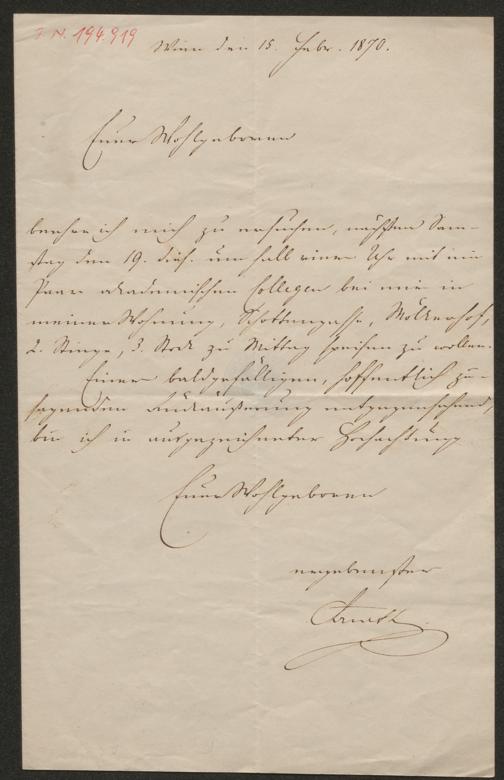 I. N. 194.919
Wien den 15. Febr. 1870.
Euer Wohlgeboren
beehre ich mich zu ersuchen, nächsten Sam-
stag den 19. dieß. um halb einer Uhr mit ein
Paar akademischen Collegen bei mir in
meiner Wohnung, Schottengasse, Mölkerhof,
2. Stiege, 3. Stock zu Mittag speisen zu wollen.
Einer baldgefälligen, hoffentlich zu-
sagenden Rückäußerung entgegensehend,
bin ich in ausgezeichneter Hochachtung
Euer Wohlgeboren
ergebenster
Arneth